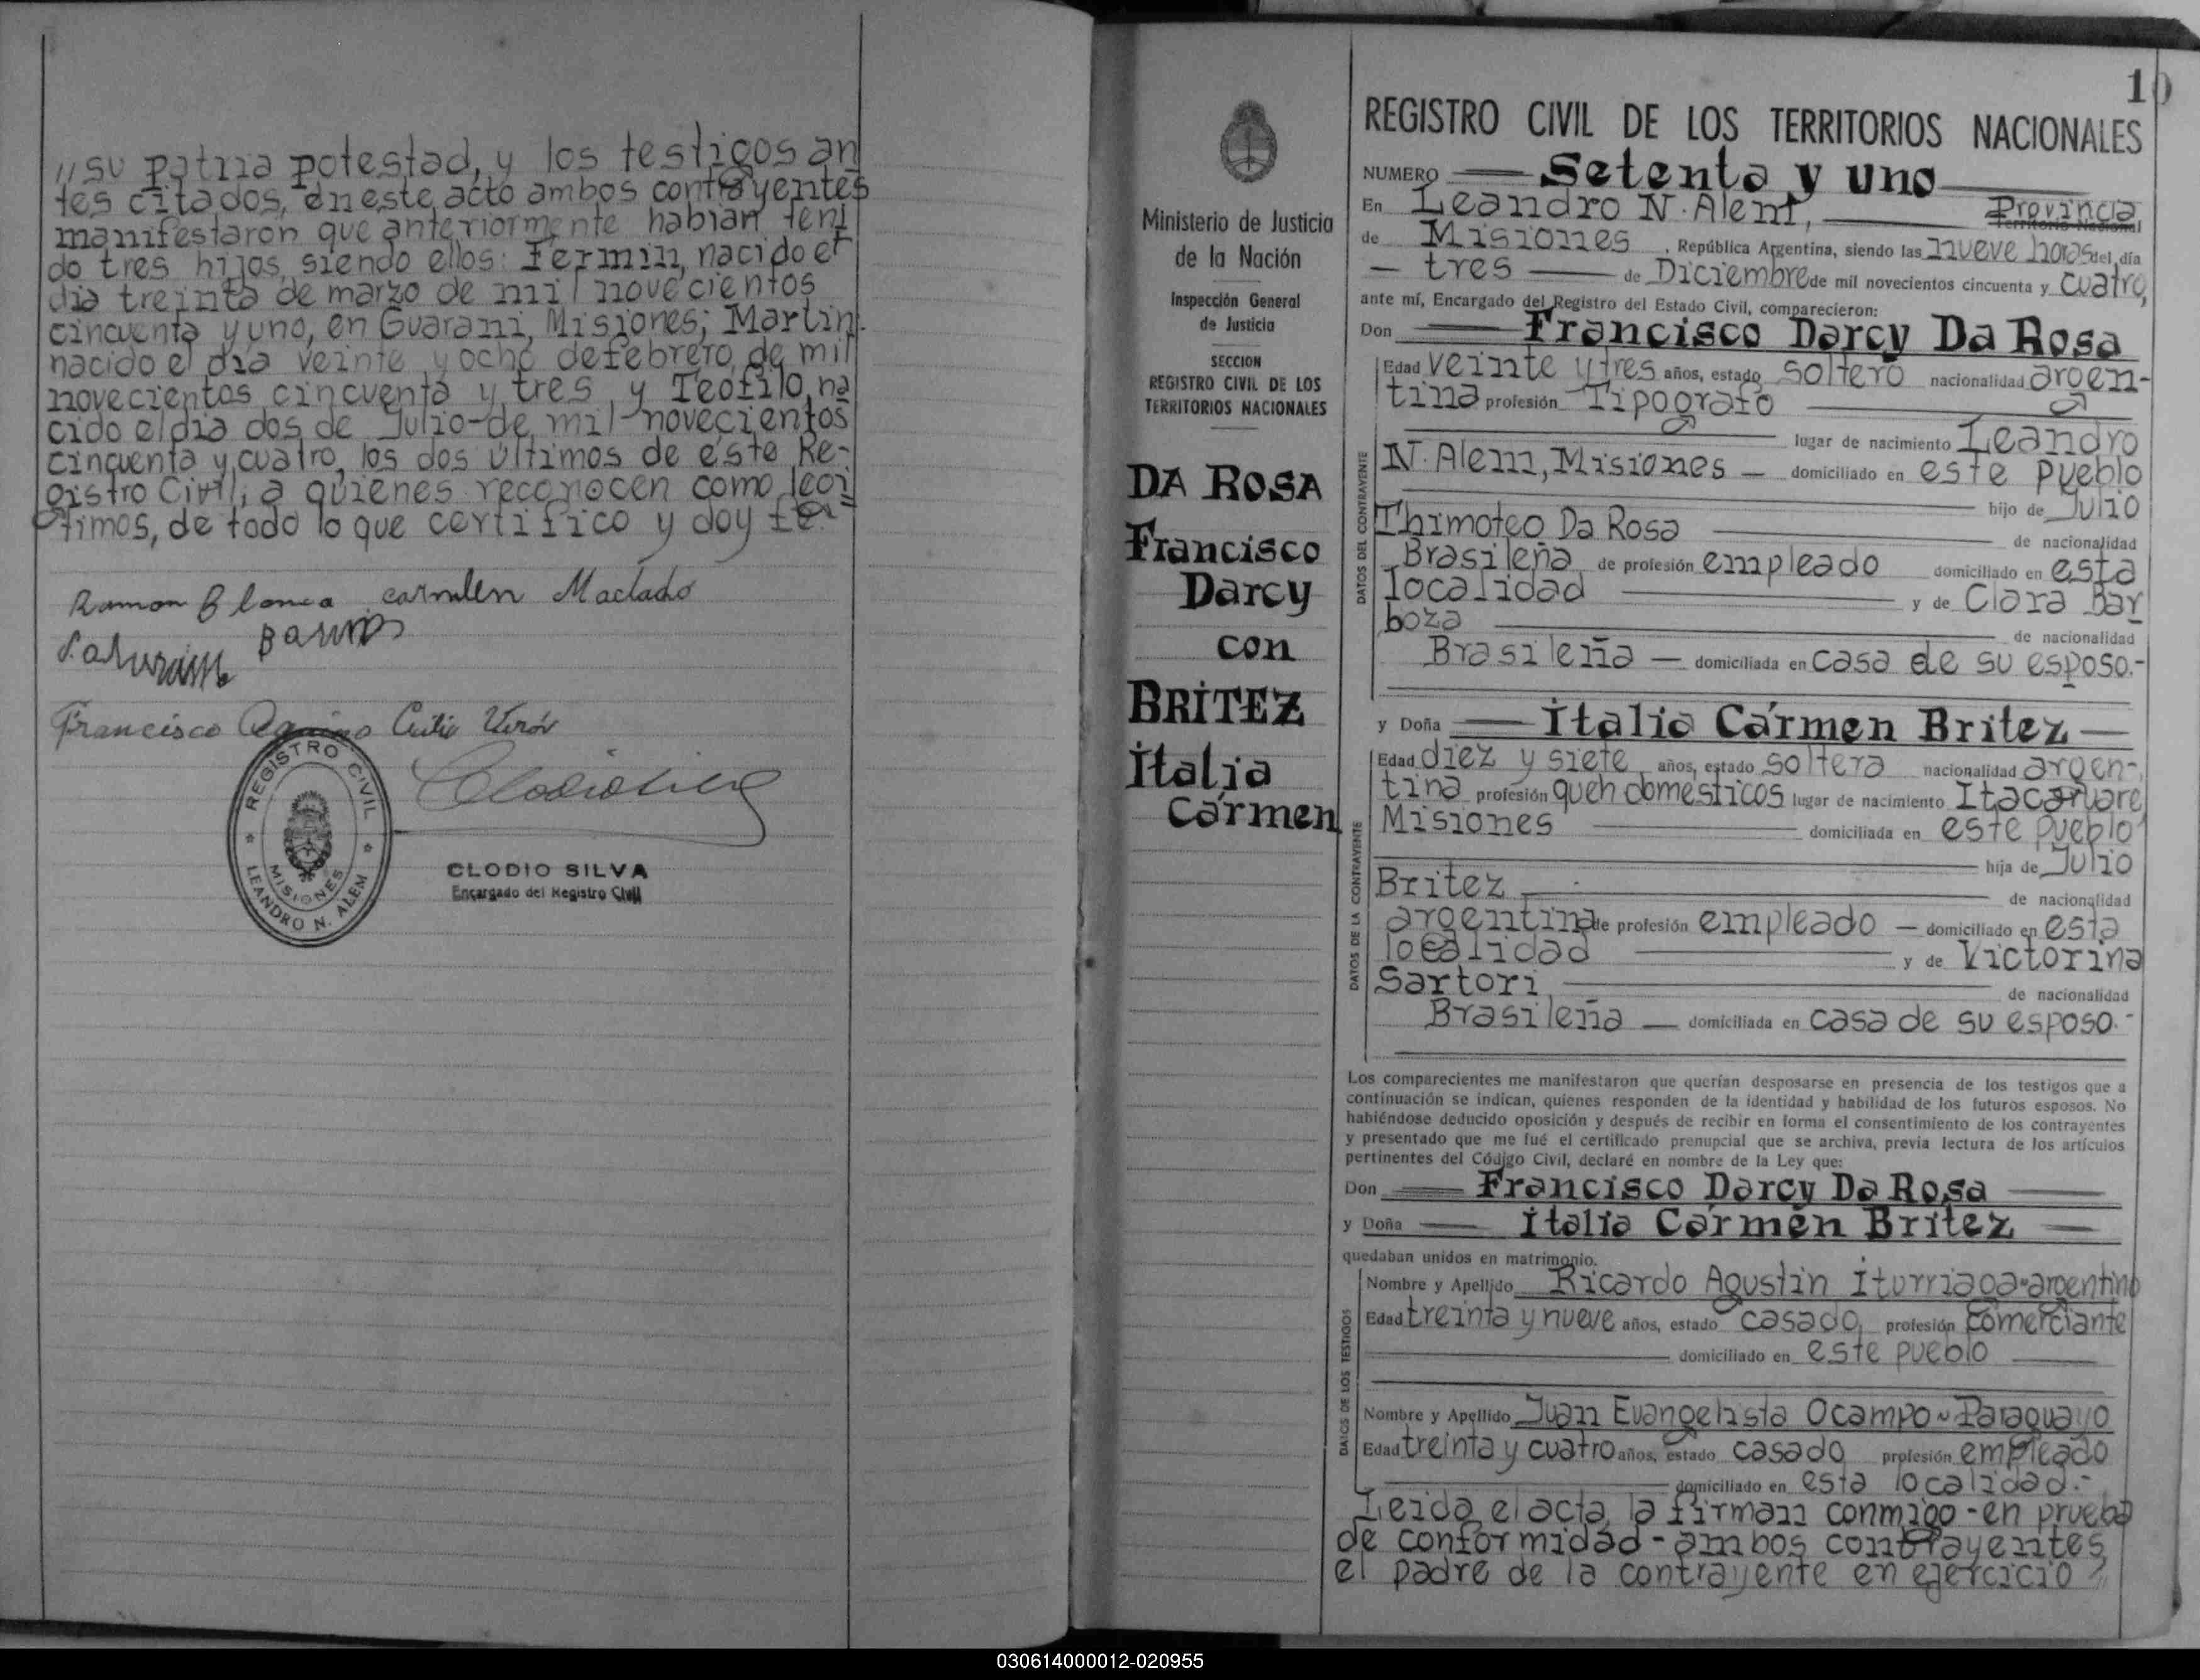 "su patria potestad, y los testigos an
tes citados, en este acto ambos contrayentes
manifestaron que anteriormente habian teni
do tres hijos, siendo ellos: Fermin, nacido el
dia treinta de marzo de mil novecientos
cincuenta y uno, en Guarani, Misiones; Martin
nacido el dia veinte y ocho de febrero de mil
novecientos cincuenta y tres y Teofilo, na
cido el dia dos de Julio-de mil-novecientos
cincuenta y cuatro, los dos últimos de éste Re-
gistro Civil; a quienes reconocen como legi
timos, de todo lo que certifico y doy fé.-
Ramon Blanca carmen Machado
Barrios
Francisco
REGISTRO CIVIL
MISIONES
LEANDRO N. ALEM
CLODIO SILVA
Encargado del Registro Civil
Ministerio de Justicia
de la Nación
Inspección General
de Justicia
SECCION
REGISTRO CIVIL DE LOS
TERRITORIOS NACIONALES
DA ROSA
Francisco
Darcy
con
BRITEZ
Italia
Cármen
10
REGISTRO CIVIL DE LOS TERRITORIOS NACIONALES
NUMERO Setenta y uno
En Leandro N. Alem, Provincia
Territorio Nacional
de Misiones, República Argentina, siendo las nueve horas del día
tres de Diciembre de mil novecientos cincuenta y cuatro,
ante mí, Encargado del Registro del Estado Civil, comparecieron:
Don Francisco Darcy Da Rosa
DATOS DEL CONTRAYENTE
Edad veinte y tres años, estado soltero nacionalidad argen-
tina profesión Tipografo
lugar de nacimiento Leandro
N. Alem, Misiones domiciliado en este pueblo
hijo de Julio
Thimoteo Da Rosa
de nacionalidad
Brasileña de profesión empleado domiciliado en esta
localidad y de Clara Bar
boza
de nacionalidad
Brasileña domiciliada en casa de su esposo.-
y Doña Italia Cármen Britez
DATOS DE LA CONTRAYENTE
Edad diez y siete años, estado soltera nacionalidad argen-
tina profesión queh domésticos lugar de nacimiento Itacaruare
Misiones domiciliada en este pueblo
hija de Julio
Britez
de nacionalidad
argentina de profesión empleado domiciliado en esta
localidad y de Victorina
Sartori
de nacionalidad
Brasileña domiciliada en casa de su esposo.-
Los comparecientes me manifestaron que querían desposarse en presencia de los testigos que a
continuación se indican, quienes responden de la identidad y habilidad de los futuros esposos. No
habiéndose deducido oposición y después de recibir en forma el consentimiento de los contrayentes
y presentado que me fué el certificado prenupcial que se archiva, previa lectura de los artículos
pertinentes del Código Civil, declaré en nombre de la Ley que:
Don Francisco Darcy Da Rosa
y Doña Italia Cármen Britez
quedaban unidos en matrimonio.
DATOS DE LOS TESTIGOS
Nombre y Apellido Ricardo Agustin Iturriaga-argentino
Edad treinta y nueve años, estado casado, profesión comerciante
domiciliado en este pueblo
Nombre y Apellido Juan Evangelista Ocampo - Paraguayo
Edad treinta y cuatro años, estado casado profesión empleado
domiciliado en esta localidad.-
Leida el acta, la firman conmigo-en prueba
de conformidad-ambos contrayentes,
el padre de la contrayente en ejercicio "
030614000012-020955